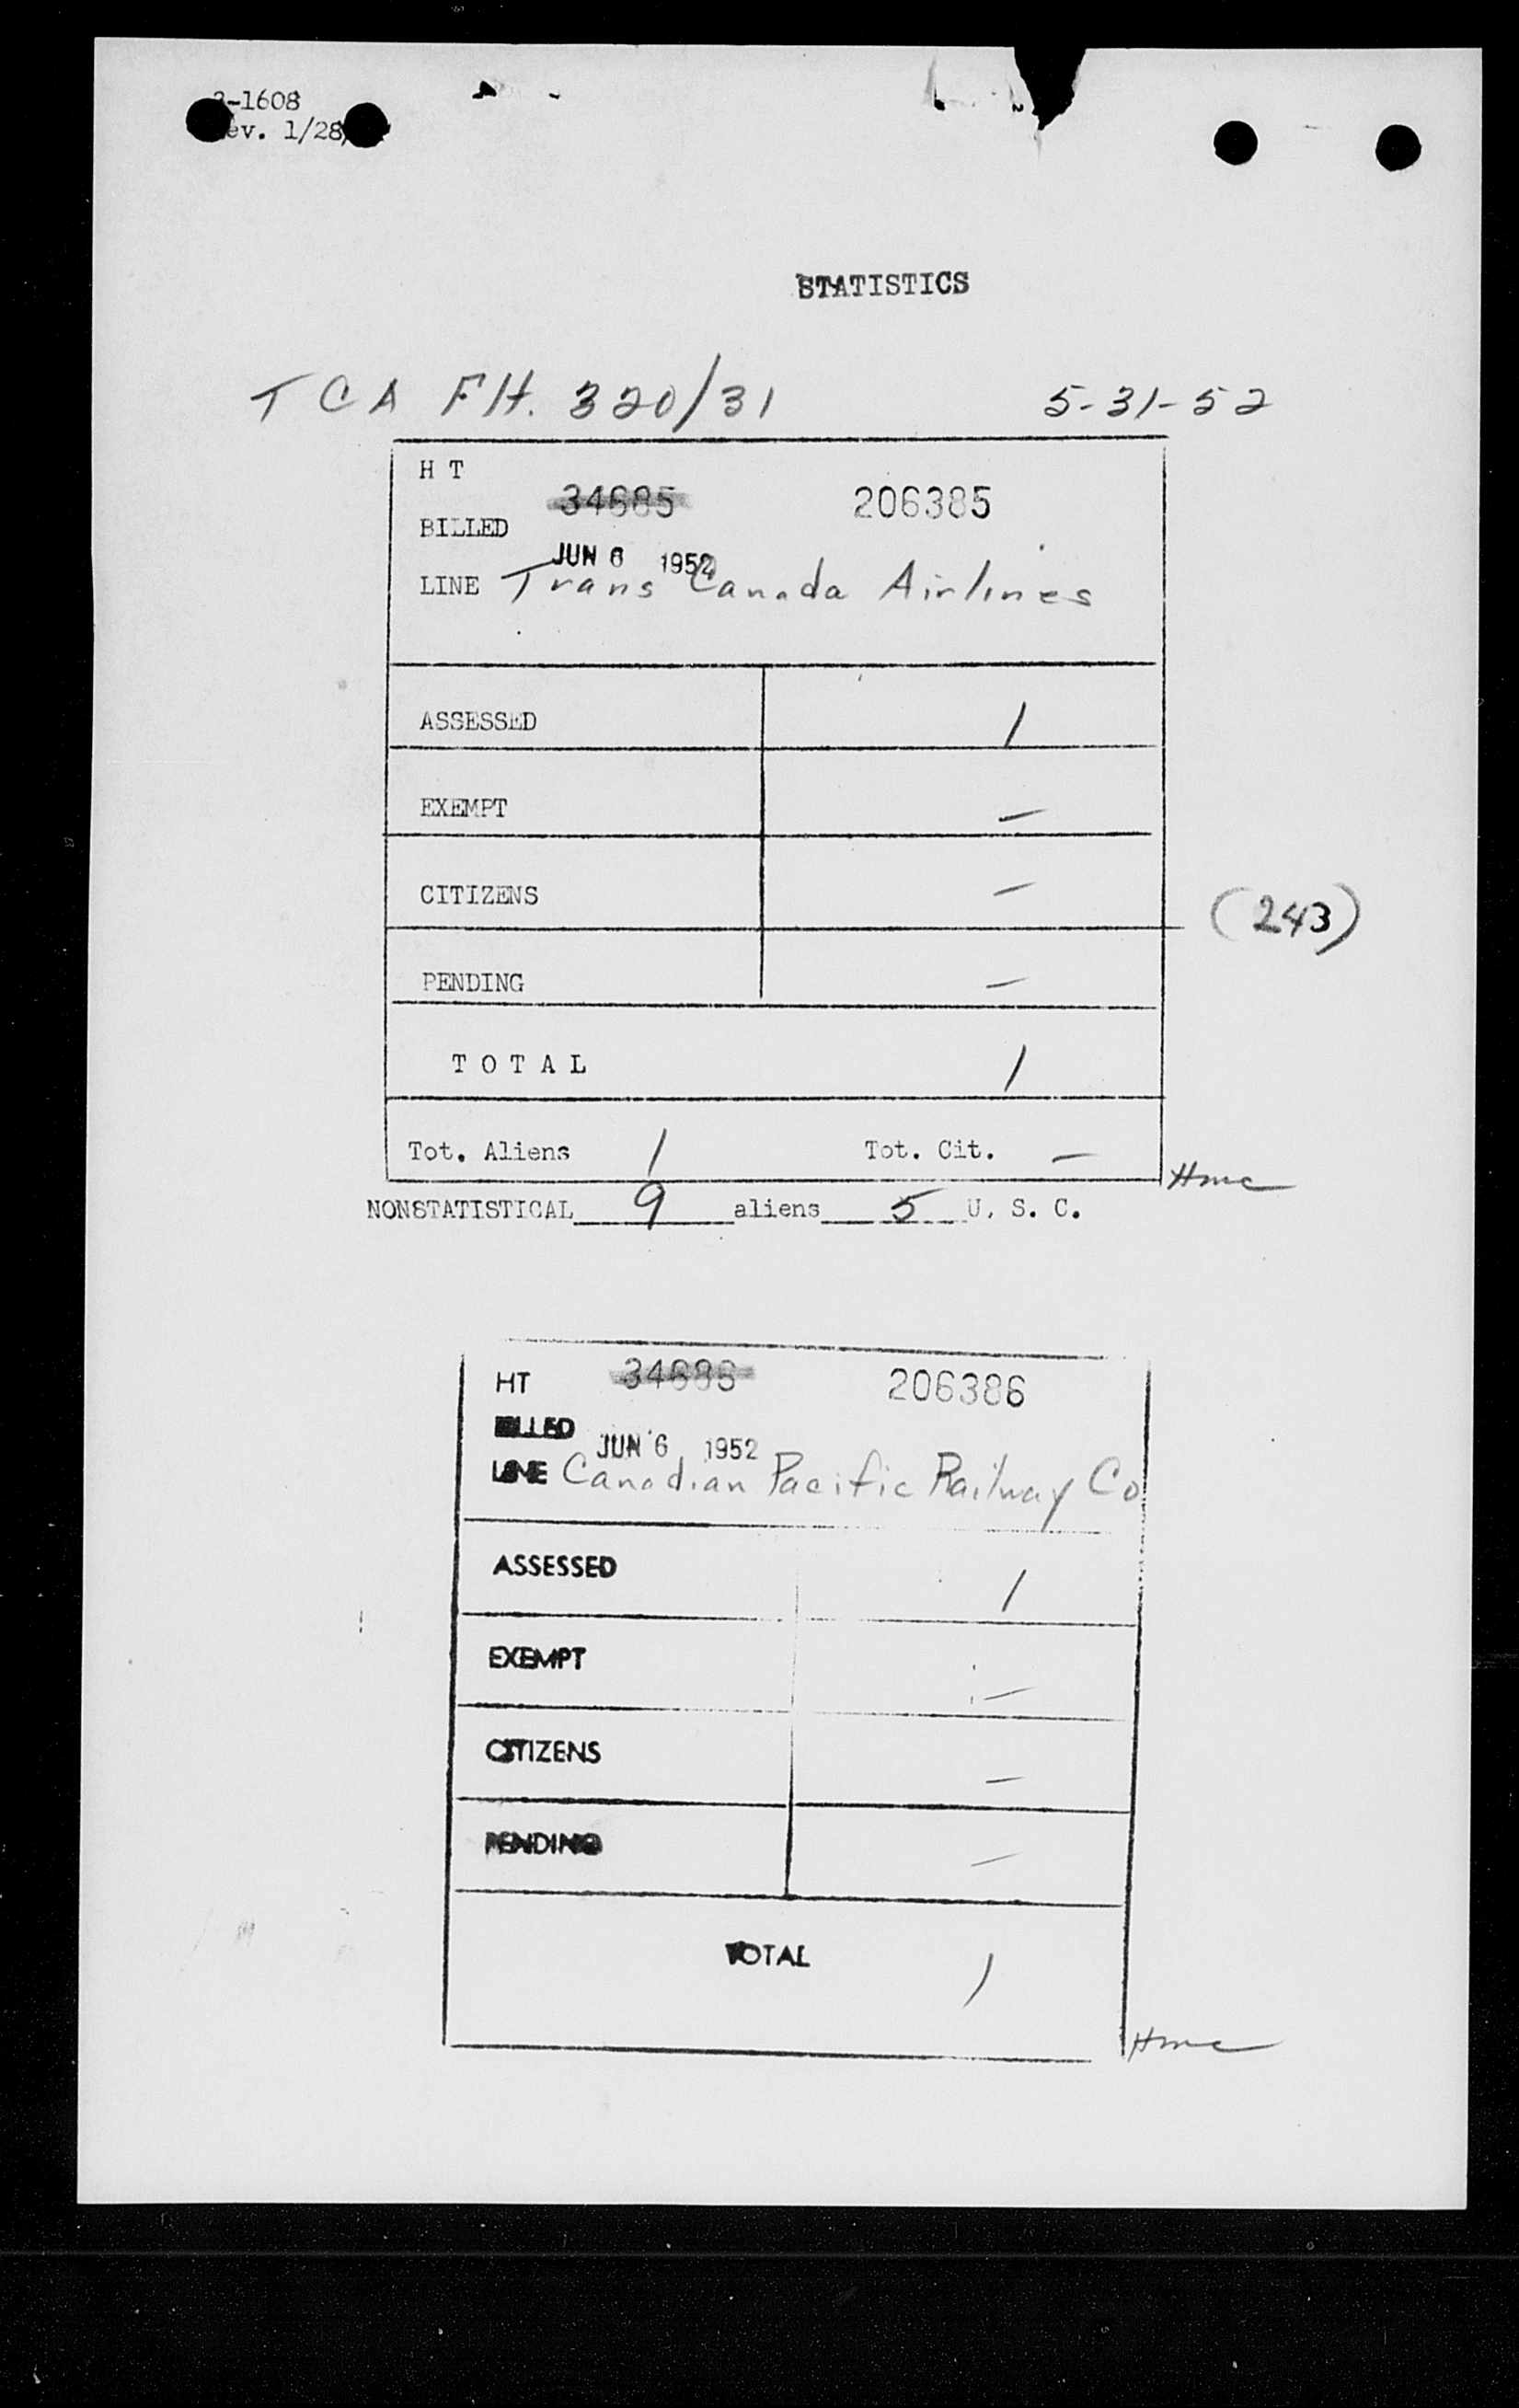 -1608
ev. 1/28/
STATISTICS
TCA Flt. 320/31 5-31-52
H T
34685 206385
BILLED
JUN 6 1952
LINE Trans Canada Airlines
ASSESSED 1
EXEMPT —
CITIZENS —
(243)
PENDING —
T O T A L 1
Tot. Aliens 1 Tot. Cit. —
Hmc
NONSTATISTICAL 9 aliens 5 U. S. C.
HT 206386
BILLED
JUN 6 1952
LINE Canadian Pacific Railway Co
ASSESSED 1
EXEMPT —
CITIZENS —
PENDING —
TOTAL 1
Hmc